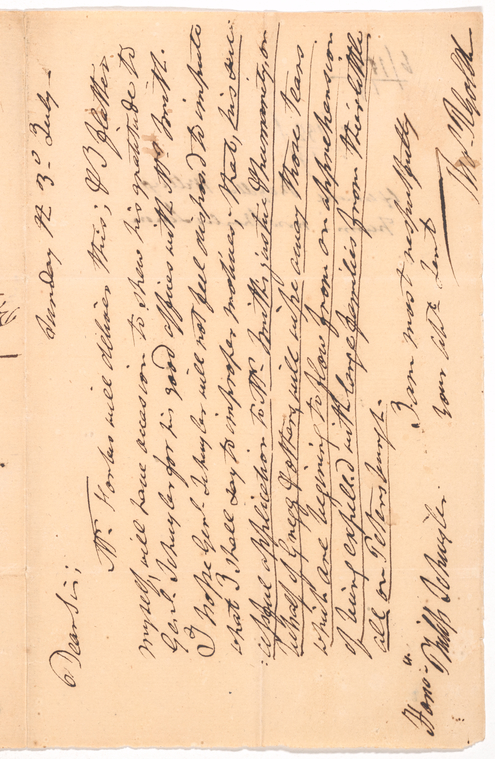 Sunday the 3d July
Dear Sir;
Mr. Forbes will deliver this; & I flatter
myself, will have occasion to shew his gratitude to
Genl. Schuyler for his good offices with Mr. Smith.
I hope Genl. Schuyler will not feel disposed to impute
what I shall say to improper motives, that, his
application to Mr. Smith, justice & humanity on
behalf of Gregg & others, will wipe away those tears
which are begining to flow from an apprehension
of being expelled with large families from their little
all on Petersburgh.
I am most respectfully
your
Hono: Phillip Schuyler